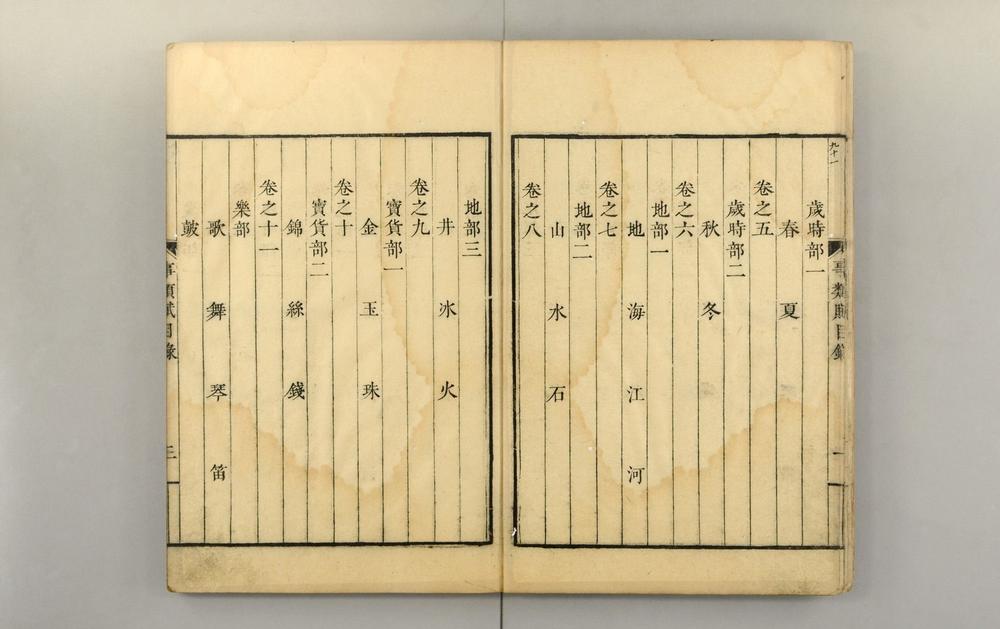 九十一
事類賦目錄
一
歲時部一
春 夏
卷之五
歲時部二
秋 冬
卷之六
地部一
地 海 江 河
卷之七
地部二
山 水 石
卷之八
地部三
井 冰 火
卷之九
寶貨部一
金 玉 珠
卷之十
寶貨部二
錦 絲 錢
卷之十一
樂部
歌 舞 琴 笛
鼓
事類賦目錄